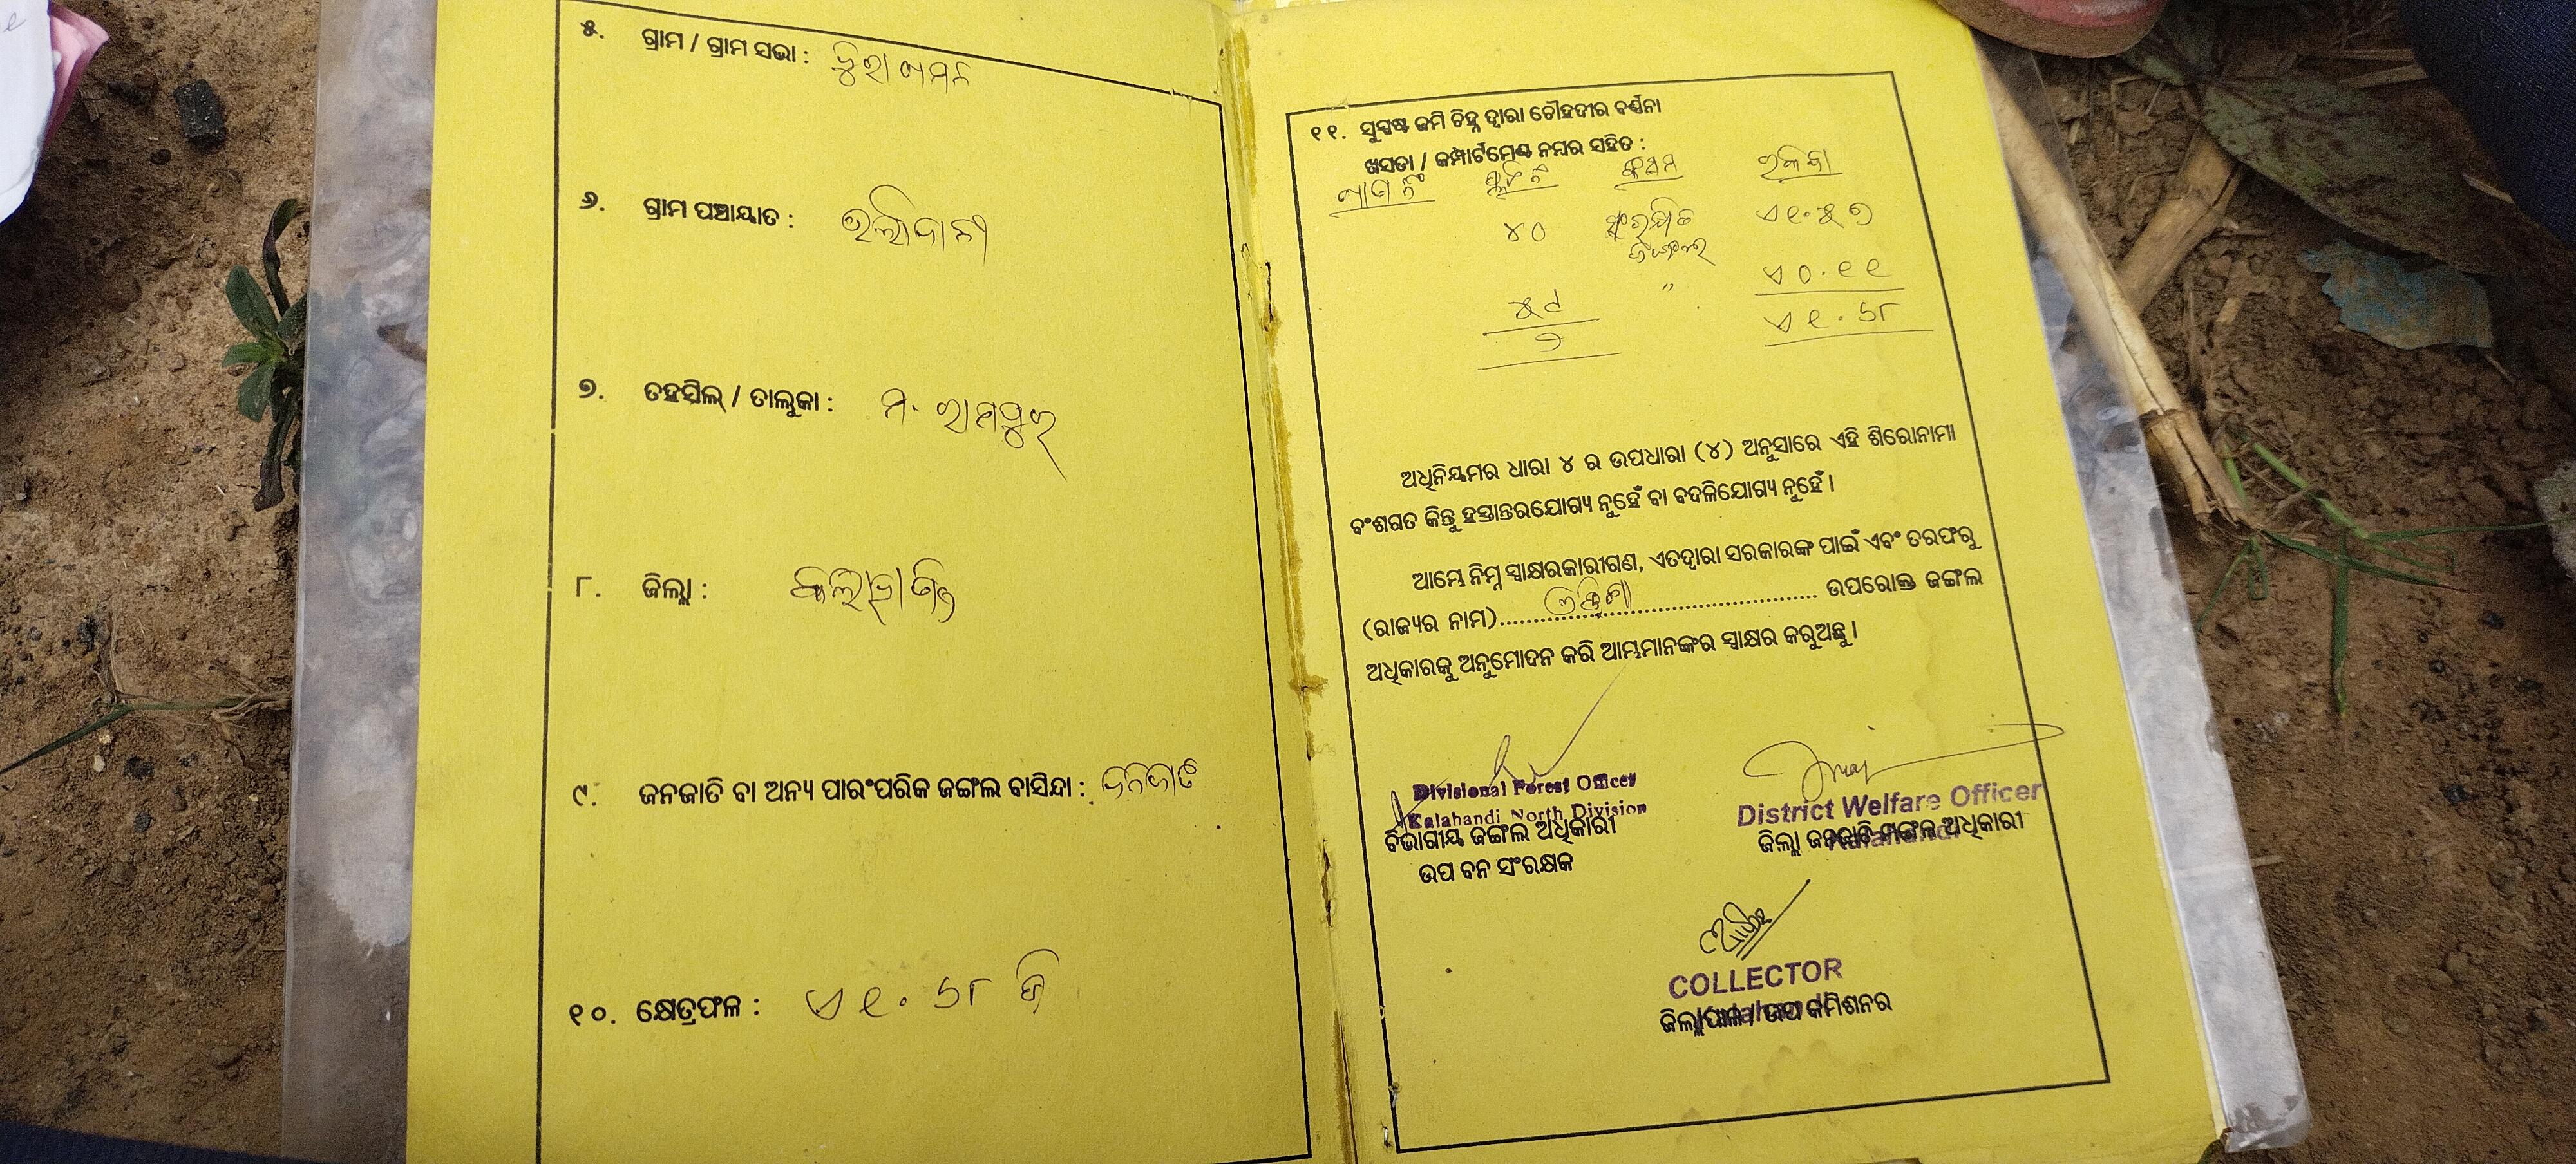 ୫. ଗ୍ରାମ / ଗ୍ରାମ ସଭା :
୬. ଗ୍ରାମ ପଞ୍ଚାୟାତ :
୭. ତହସିଲ୍ / ତାଲୁକା : ମ. ରାମପୁର
୮. ଜିଲ୍ଲା : କଳାହାଣ୍ଡି
୯. ଜନଜାତି ବା ଅନ୍ୟ ପାରଂପରିକ ଜଙ୍ଗଲ ବାସିନ୍ଦା : ଜନଜାତି
୧୦. କ୍ଷେତ୍ରଫଳ : ଏ ୧.୬୮ ଡି
୧୧. ସୁସ୍ପଷ୍ଟ ଜମି ଚିହ୍ନ ଦ୍ୱାରା ଚୌହଦୀର ବର୍ଣ୍ଣନା
ଖସଡା / କମ୍ପାର୍ଟମେଣ୍ଟ ନମ୍ବର ସହିତ :
ପ୍ଲଟ ନଂ କିସମ ରକବା
୪୦ ସଂରକ୍ଷିତ ଏ ୧.୫୭
ଜଙ୍ଗଲ
୫୯ " ଏ ୦.୧୧
୨ ଏ ୧.୬୮
ଅଧିନିୟମର ଧାରା ୪ ର ଉପଧାରା (୪) ଅନୁସାରେ ଏହି ଶିରୋନାମା
ବଂଶଗତ କିନ୍ତୁ ହସ୍ତାନ୍ତରଯୋଗ୍ୟ ନୁହେଁ ବା ବଦଳିଯୋଗ୍ୟ ନୁହେଁ ।
ଆମ୍ଭେ ନିମ୍ନ ସ୍ୱାକ୍ଷରକାରୀଗଣ, ଏତଦ୍ୱାରା ସରକାରଙ୍କ ପାଇଁ ଏବଂ ତରଫରୁ
(ରାଜ୍ୟର ନାମ) ଓଡ଼ିଶା ଉପରୋକ୍ତ ଜଙ୍ଗଲ
ଅଧିକାରକୁ ଅନୁମୋଦନ କରି ଆମ୍ଭମାନଙ୍କର ସ୍ୱାକ୍ଷର କରୁଅଛୁ ।
Divisional Forest Officer
Kalahandi North Division
ବିଭାଗୀୟ ଜଙ୍ଗଲ ଅଧିକାରୀ
ଉପ ବନ ସଂରକ୍ଷକ
District Welfare Officer
Kalahandi
ଜିଲ୍ଲା ଜନଜାତି ମଙ୍ଗଳ ଅଧିକାରୀ
COLLECTOR
Kalahandi
ଜିଲ୍ଲାପାଳ / ଉପ କମିଶନର